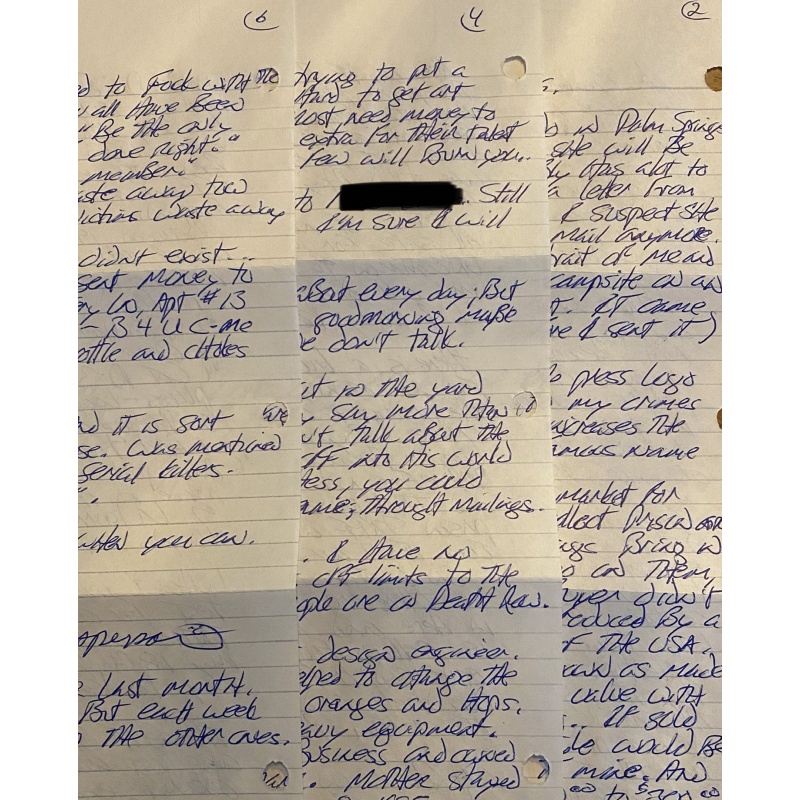 6
ed to Fuck with the
all Have Been
"Be the only
done right."
member."
aste away too
victims waste away
didnt exist...
sent money to
Apt #13
- B4UC-me
ottle and chokes
nd it is sort
se. Was mentioned
serial killers.
when you can.
last month.
But each week
the other ones.
4
trying to put a
Hard to get art
most need money to
extra for their talent
few will burn you..
to Still
I'm sure I will
about every day; But
goodmorning maybe
e don't talk.
ut in the yard
say more then
n't talk about the
off into his world
less, you could
ame; through mailings.
. I have no
off limits to the
ople are on Death Row.
design engineer.
elped to change the
oranges and Hops.
eavy equipment.
Business and owned
. Mother stayed
2
b in Palm Springs
she will Be
Has alot to
a letter from
I suspect she
mail anymore.
rait of me and
campsite on an
It came
e I sent it)
press logo
my crimes
increases the
amous name
market for
llect Prison art
ngs Bring in
on them,
yer didn't
roduced By a
of the USA.
own as Made
value with
. If sold
le would Be
mine. And
to